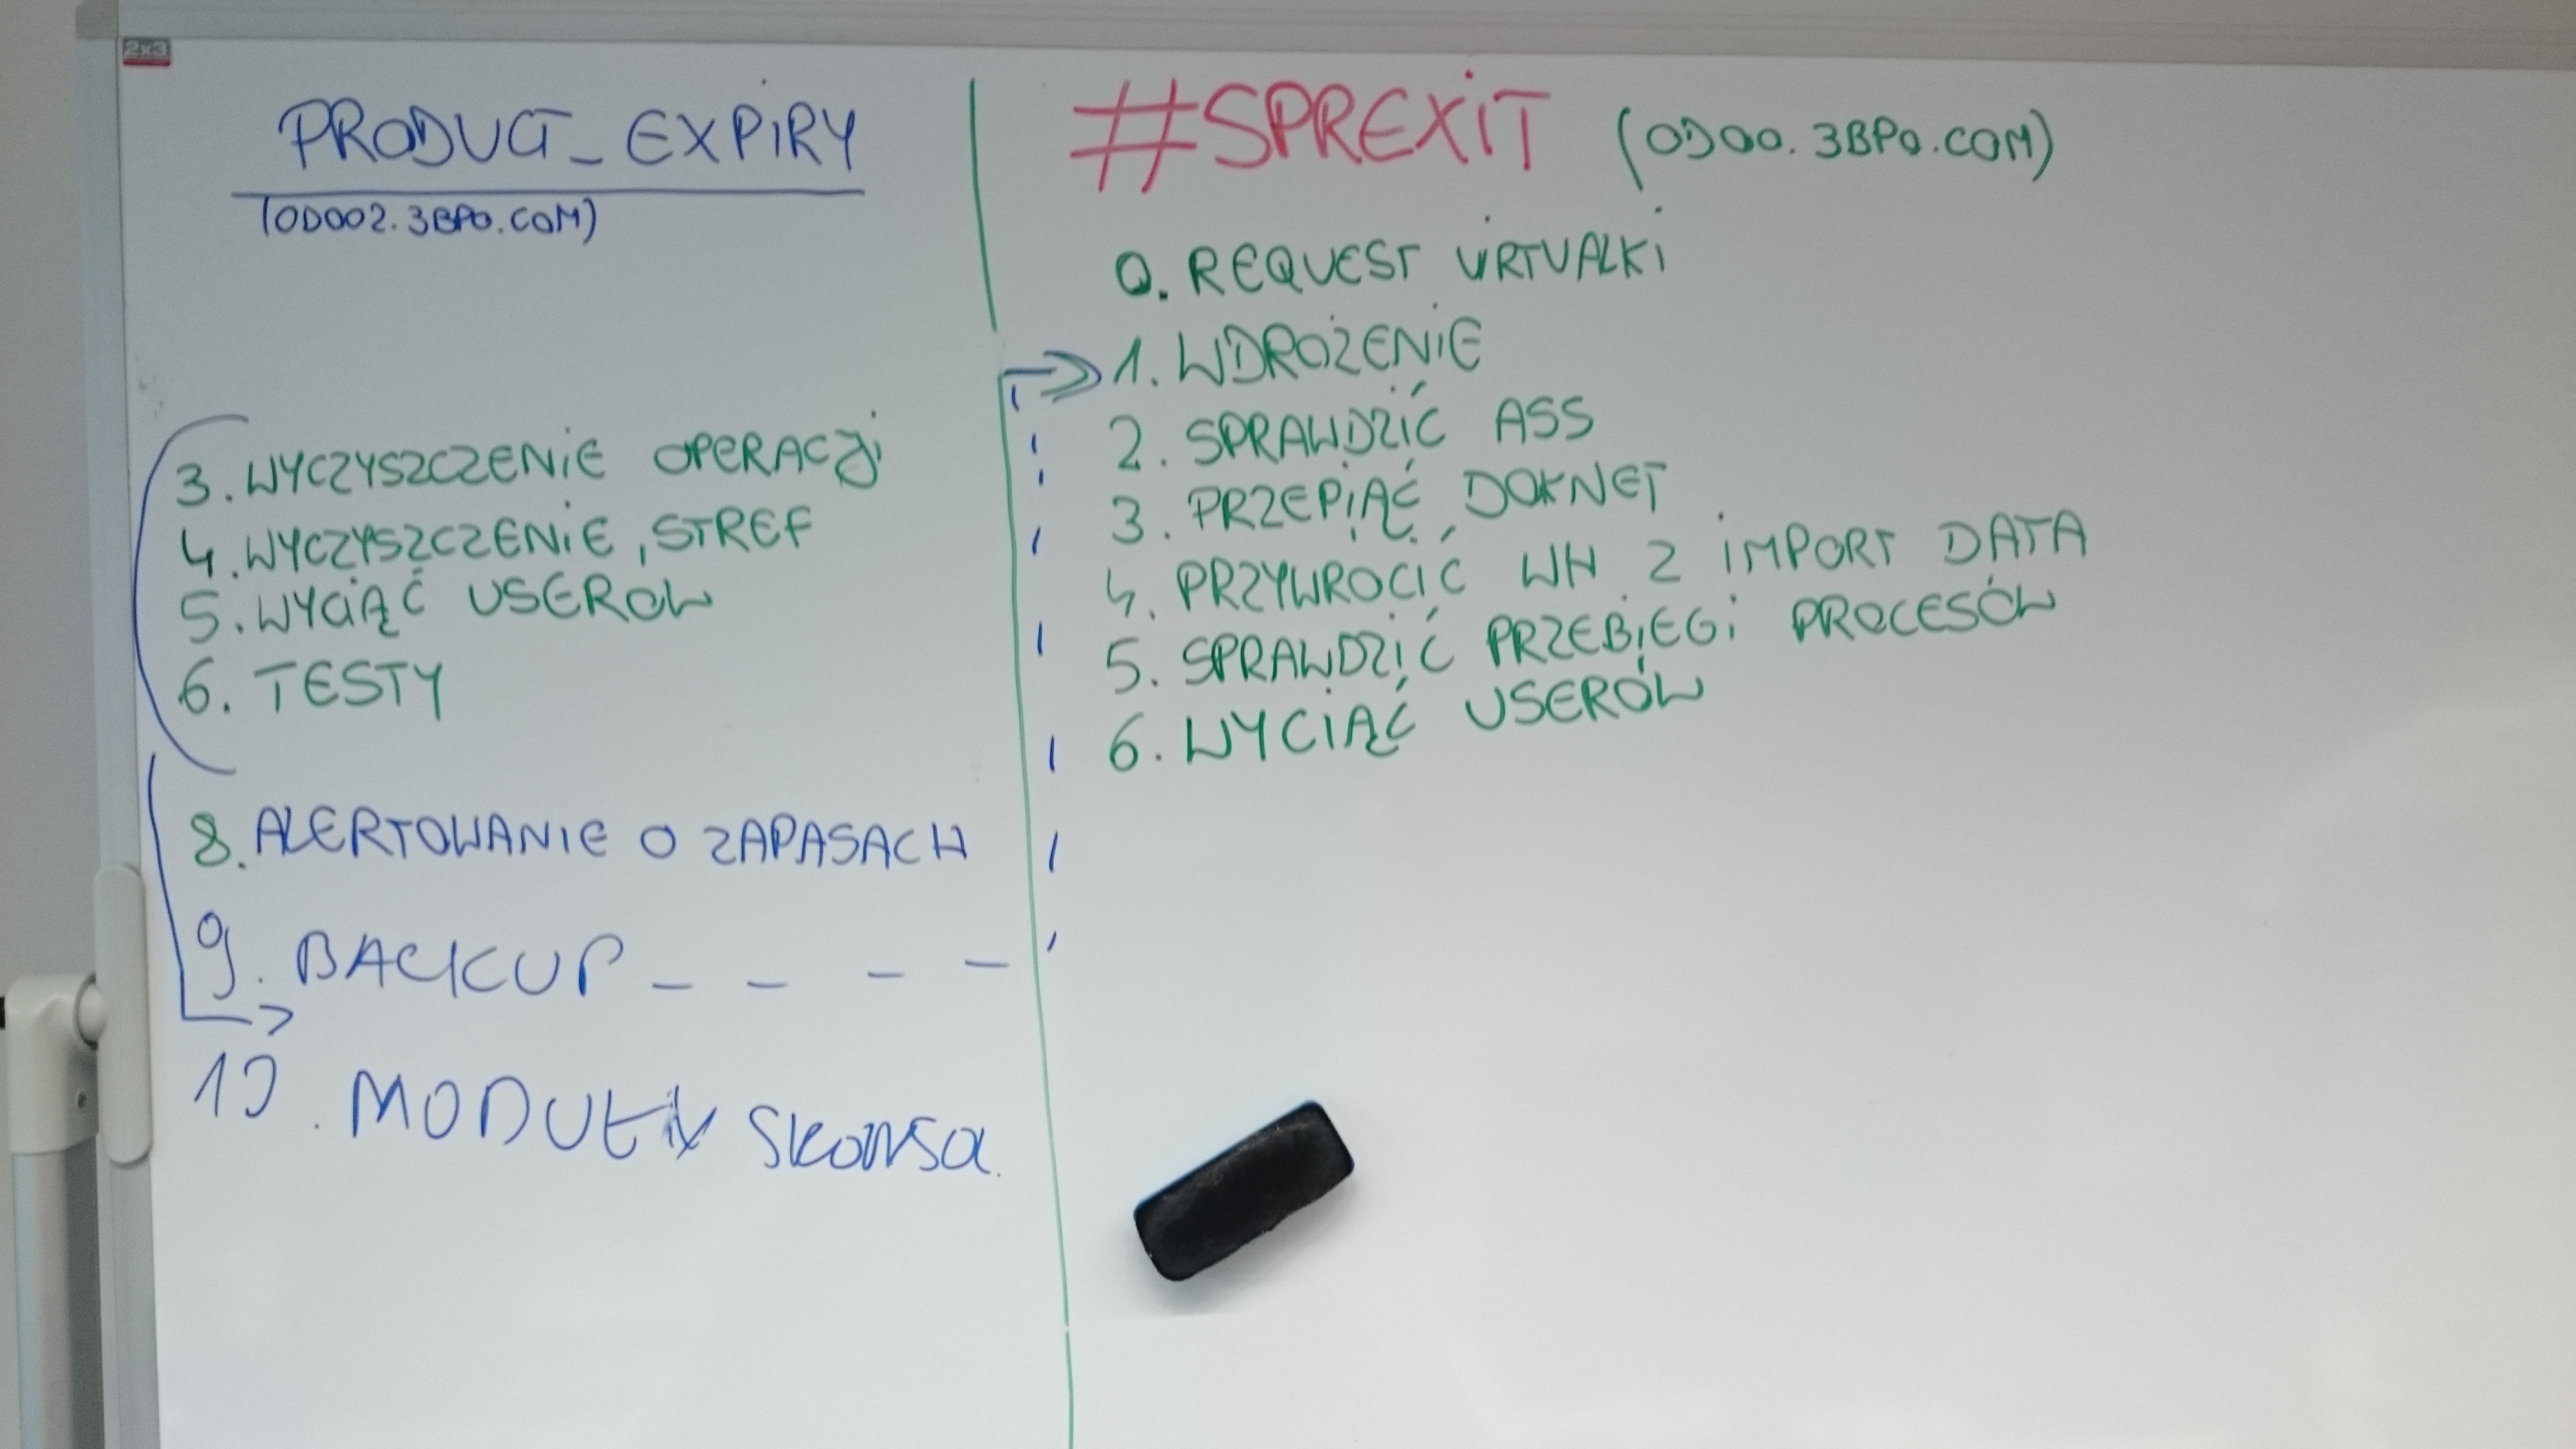 2x3
PRODUCT_EXPIRY
(ODOO2.3BPO.COM)
3. WYCZYSZCZENIE OPERACJI
4. WYCZYSZCZENIE STREF
5. WYCIĄĆ USEROW
6. TESTY
8. ALERTOWANIE O ZAPASACH
9. BACKUP
10. MODUŁY
#SPREXIT (ODOO.3BPO.COM)
0. REQUEST VIRTUALKI
1. WDROŻENIE
2. SPRAWDZIĆ ASS
3. PRZEPIĄĆ DOKNET
4. PRZYWROCIĆ WH Z IMPORT DATA
5. SPRAWDZIĆ PRZEBIEGI PROCESÓW
6. WYCIĄĆ USERÓW